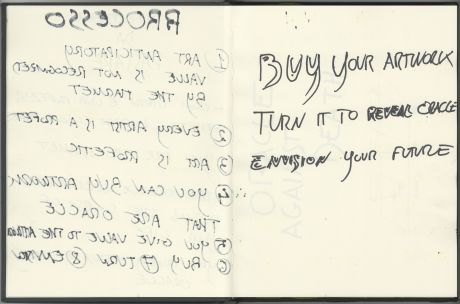 PROCESSO
1 ART ANTICIPATORY
VALUE IS NOT
BY THE
2 EVERY ARTIST IS A PROFET
3 ART IS PROFETIC
4 YOU CAN BUY ARTWORK
THAT ARE ORACLE
5 YOU GIVE VALUE TO THE
6 BUY 7 TURN 8
BUY YOUR ARTWORK
TURN IT TO REVEAL ORACLE
ENVISION YOUR FUTURE